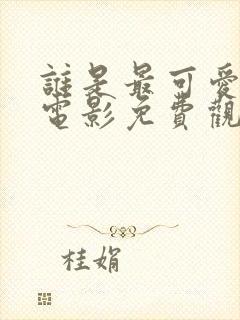 誰是最可愛
電影免費觀
桂娟